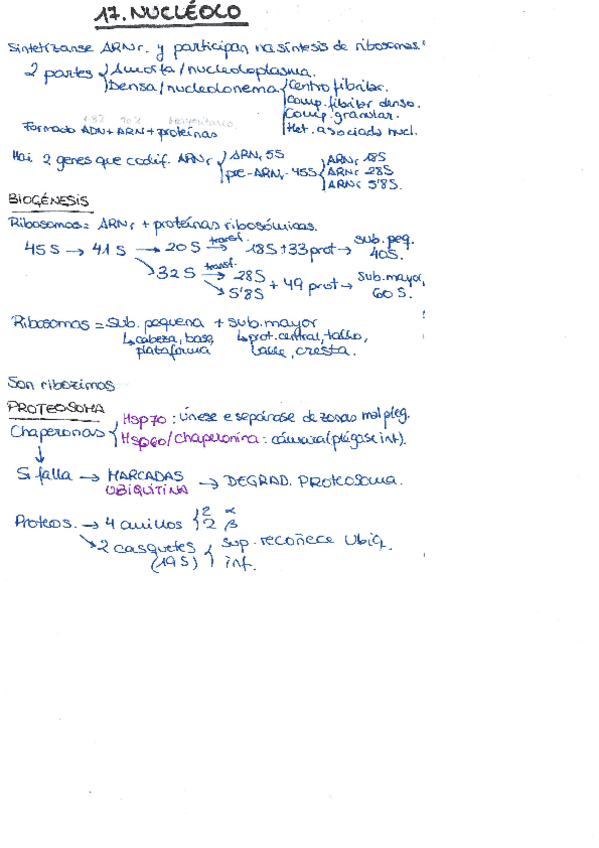 17. NUCLÉOLO
Sintetízanse ARNr. y participan na síntesis de ribosomas.
2 partes { Amorfa/nucleoloplasma.
Densa/nucleolonema { Centro fibrilar.
Comp. fibrilar denso.
Comp. granular.
Het. asociada nucl.
Formado ADN + ARN + proteínas
Hai 2 genes que codif. ARNr { ARNr 5S
pre-ARNr 45S { ARNr 18S
ARNr 28S
ARNr 5'8S.
BIOGÉNESIS
Ribosomas = ARNr + proteínas ribosómicas.
45S → 41S → 20S transf. → 18S + 33 prot → sub. peq. 40S.
↘ 32S transf. → 28S
↘ 5'8S + 49 prot → Sub. mayor, 60S.
Ribosomas = sub. pequena + sub. mayor
↳ cabeza, base, plataforma
↳ prot. central, tallo, valle, cresta.
Son ribozimas
PROTEOSOMA
Chaperonas { Hsp70: únese e sepárase de zonas mal pleg.
Hsp60/chaperonina: cámara (plégase int).
↓
Si falla → MARCADAS UBIQUITINA → DEGRAD. PROTEOSOMA.
Proteos. → 4 anillos { 2 α
2 β
↘ 2 casquetes (19S) { sup. recoñece Ubiq.
inf.